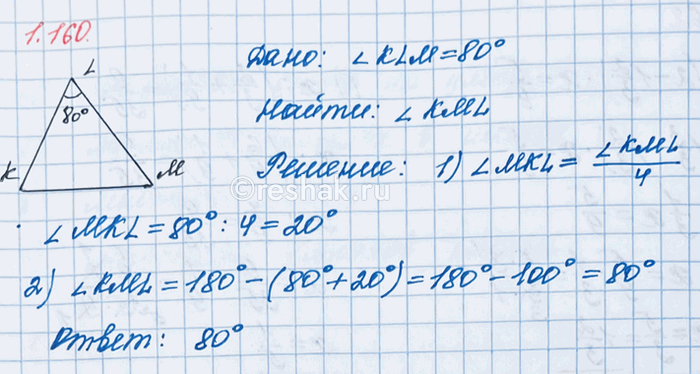 1.160.
L
80°
K
M
Дано: ∠KLM=80°
Найти: ∠KML
Решение: 1) ∠MKL = ∠KML/4
∠MKL = 80° : 4 = 20°
2) ∠KML = 180° - (80° + 20°) = 180° - 100° = 80°
Ответ: 80°
©reshak.ru